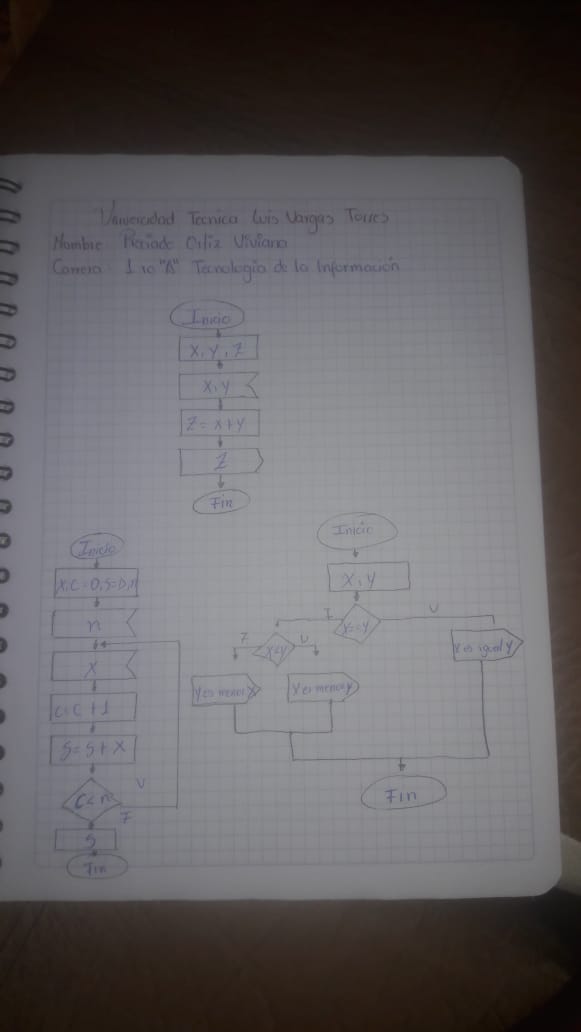 Universidad Tecnica Luis Vargas Torres
Nombre Ortiz Viviana
Carrera 1 ro "A" Tecnología de la Información
Inicio
X, Y, Z
X, Y
Z = X + Y
Z
Fin
Inicio
X, C = 0, S = 0, n
n
X
C = C + 1
S = S + X
C < n
V
F
S
Fin
Inicio
X, Y
X == Y
F
V
X < Y
F
V
Y es menor X
X es igual Y
Fin